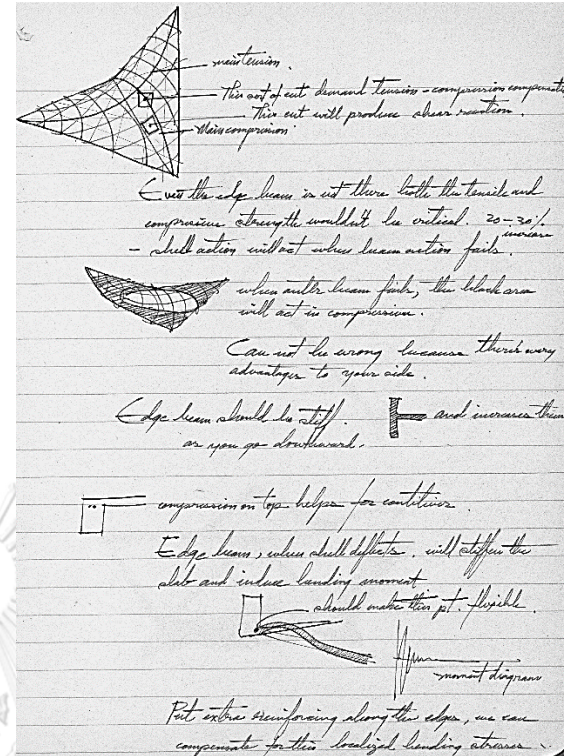 main tension.
This sort of cut demand tension - compression compensati
This cut will produce shear reaction.
Main compression
Even the edge beam is not there both the tensile and
compressive strength wouldn't be critical. 20-30%
increase
- shell action will act when beam action fails.
when outer beam fails, the black area
will act in compression.
Can not be wrong because there's every
advantages to your side.
Edge beam should be stiff.
and increases them
as you go downward.
compression on top helps for
Edge beam, when shell deflects. will stiffen the
slab and induce bending moment
should make this pt. flexible.
moment diagram
Put extra reinforcing along the edges, we can
compensate for this localized bending stresses